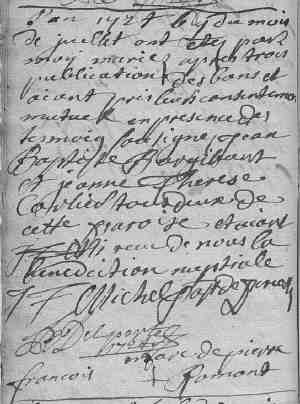 l'an 1727 le 9 du mois
de juillet ont etes par
moy mariez apres trois
publication des bans et
aiant pris leur consentement
mutuel en presence des
temoig soussigne jean
Baptiste
et jeanne Therese
tous deux de
cette paroise et aiant
recu de nous la
benediction nuptiale
Michel past
Delporte
marc de pierre
francois